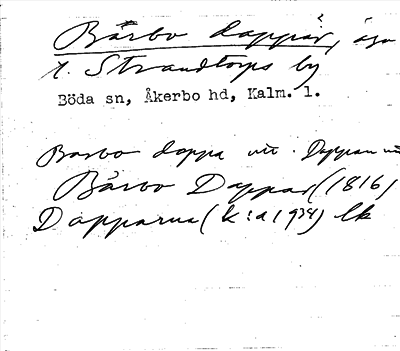 Bårbo dappar, ägor
t. Strandtorps by
Böda sn, Åkerbo hd, Kalm. l.
Barbo dappa utt. Dappan
Bårbo Dappar (1816)
Dapparna (k:a 1934) lk